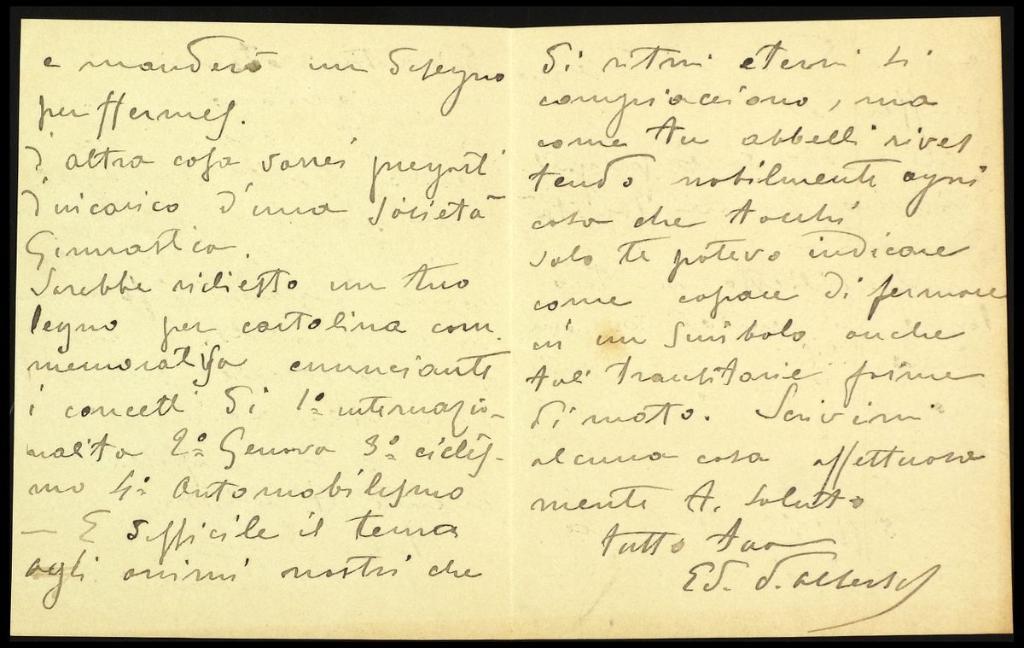 e manderò un disegno
per Hermes.
D'altra cosa vorrei pregarti
d'incarico d'una Società
Ginnastica.
Sarebbe richiesto un tuo
legno per cartolina com
memorativa enunciante
i concetti di 1º internazio-
nalità 2º Genova 3º ciclis-
mo 4º Automobilismo
— E difficile il tema
agli animi nostri che
di ritmi eterni si
compiacciono, ma
come tu abbelli rives
tendo nobilmente ogni
cosa che tocchi
solo te potevo indicare
come capace di fermare
in un simbolo anche
tali transitorie forme
di moto. Scrivimi
alcuna cosa affettuosa
mente A. Saluto
tutto tuo
Ed. d. Albertis